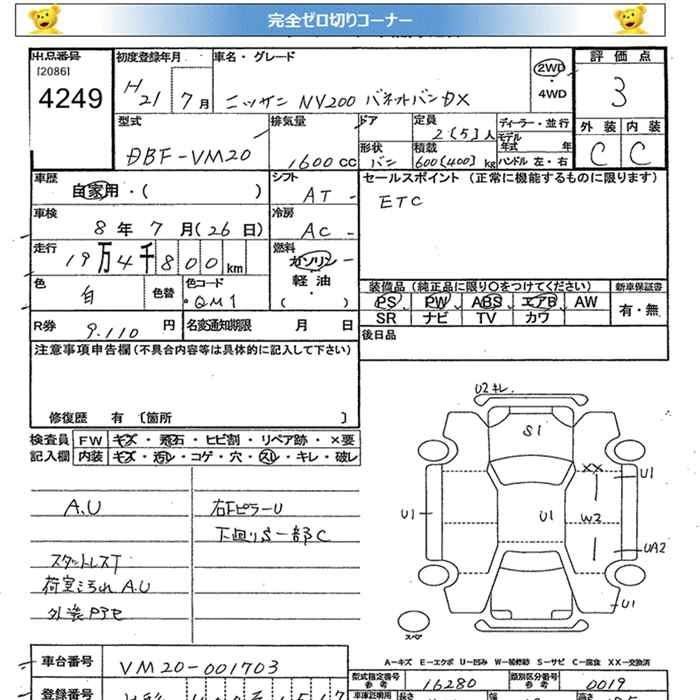 完全ゼロ切りコーナー
出品番号
[2086]
4249
初度登録年月
H
21 7月
車名・グレード
ニッサン NV200 バネットバンDX
2WD
・
4WD
評価点
3
外装 内装
C C
型式
DBF-VM20
排気量
1600cc
ドア
形状
バン
定員
2(5)人
積載
600(400)kg
ディーラー・並行
モデル
年式 年
ハンドル 左・右
車歴
自家用・( )
シフト
AT
セールスポイント (正常に機能するものに限ります)
ETC
車検
8年 7月(26日)
冷房
AC
走行
19万4千800km
燃料
ガソリン
軽油
・
( )
色
白
色替
色コード
QM1
装備品 (純正品に限り〇をつけてください)
新車保証書
PS PW ABS エアB AW
SR ナビ TV カワ
有・無
R券 9,110 円
名変通知期限 月 日
後日品
注意事項申告欄(不具合内容等は具体的に記入して下さい)
修復歴 有 〔箇所 〕
検査員
記入欄
FW キズ・飛石・ヒビ割・リペア跡・×要
内装 キズ・汚レ・コゲ・穴・スレ・キレ・破レ
A.U
スタットレスT
荷室こうれ A.U
外装P7セ
右Fピラ-U
下廻りS一部C
U2キレ
S1
XX
U1
U1
U1
W2
UA2
U1
スペア
A-キズ E-エクボ U-凹み W-補修跡 S-サビ C-腐食 XX-交換済
車台番号 VM20-001703
型式指定番号
参考
16280
類別区分番号
参考
0019
登録番号
車庫証明用
長さ